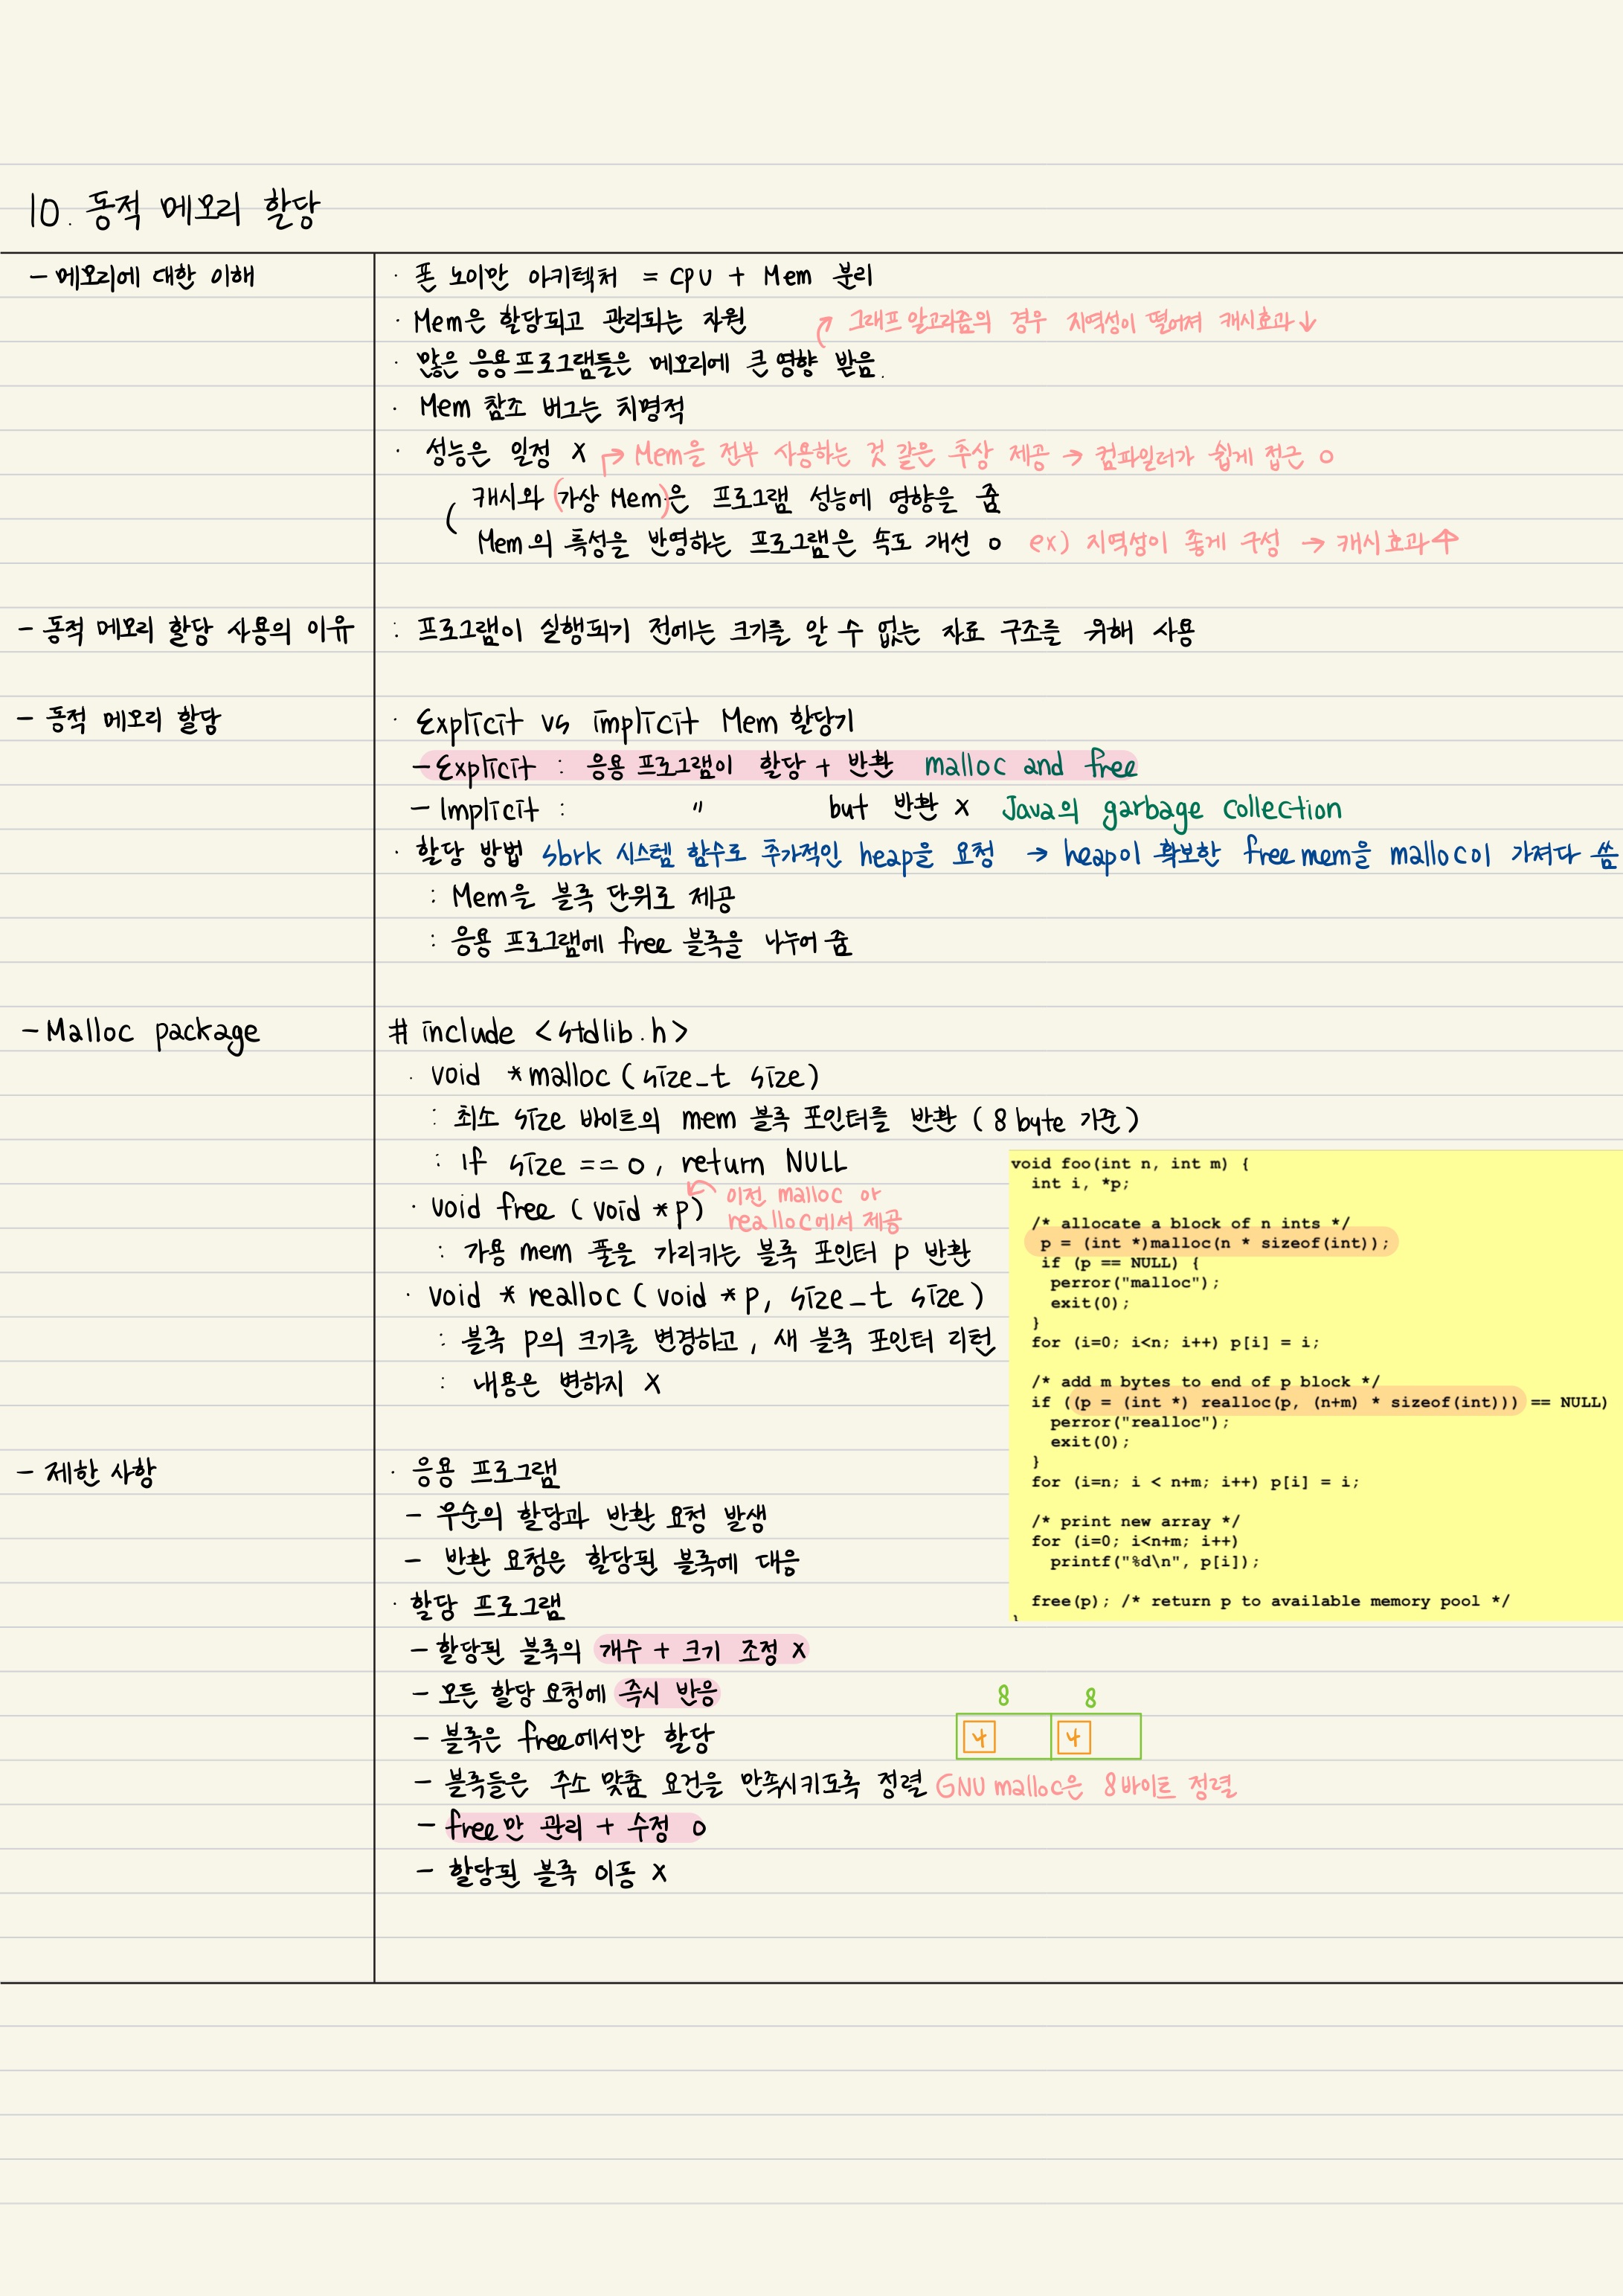 10. 동적 메모리 할당
- 메모리에 대한 이해
· 폰 노이만 아키텍처 = CPU + Mem 분리
· Mem은 할당되고 관리되는 자원
그래프 알고리즘의 경우 지역성이 떨어져 캐시효과↓
· 많은 응용프로그램들은 메모리에 큰 영향 받음.
· Mem 참조 버그는 치명적
· 성능은 일정 X
→ Mem을 전부 사용하는 것 같은 추상 제공 → 컴파일러가 쉽게 접근 O
캐시와 (가상 Mem)은 프로그램 성능에 영향을 줌
Mem의 특성을 반영하는 프로그램은 속도 개선 O ex) 지역성이 좋게 구성 → 캐시효과↑
- 동적 메모리 할당 사용의 이유
: 프로그램이 실행되기 전에는 크기를 알 수 없는 자료 구조를 위해 사용
- 동적 메모리 할당
· Explicit vs implicit Mem 할당기
- Explicit : 응용 프로그램이 할당 + 반환 malloc and free
- Implicit : " but 반환 X Java의 garbage collection
· 할당 방법 sbrk 시스템 함수로 추가적인 heap을 요청 → heap이 확보한 free mem을 malloc이 가져다 씀
: Mem을 블록 단위로 제공
: 응용 프로그램에 free 블록을 나누어 줌
- Malloc package
# include <stdlib.h>
· void *malloc (size_t size)
: 최소 size 바이트의 mem 블록 포인터를 반환 ( 8 byte 기준 )
: if size == 0, return NULL
· void free ( void *p)
이전 malloc or
realloc에서 제공
: 가용 mem 풀을 가리키는 블록 포인터 p 반환
· void * realloc ( void *p, size_t size )
: 블록 p의 크기를 변경하고, 새 블록 포인터 리턴
: 내용은 변하지 X
void foo(int n, int m) {
int i, *p;
/* allocate a block of n ints */
p = (int *)malloc(n * sizeof(int));
if (p == NULL) {
perror("malloc");
exit(0);
}
for (i=0; i<n; i++) p[i] = i;
/* add m bytes to end of p block */
if ((p = (int *) realloc(p, (n+m) * sizeof(int))) == NULL)
perror("realloc");
exit(0);
}
for (i=n; i < n+m; i++) p[i] = i;
/* print new array */
for (i=0; i<n+m; i++)
printf("%d\n", p[i]);
free(p); /* return p to available memory pool */
- 제한 사항
· 응용 프로그램
- 우순의 할당과 반환 요청 발생
- 반환 요청은 할당된 블록에 대응
· 할당 프로그램
- 할당된 블록의 개수 + 크기 조정 X
- 모든 할당 요청에 즉시 반응
- 블록은 free에서만 할당
8 8
4 4
- 블록들은 주소 맞춤 요건을 만족시키도록 정렬 GNU malloc은 8바이트 정렬
- free만 관리 + 수정 O
- 할당된 블록 이동 X